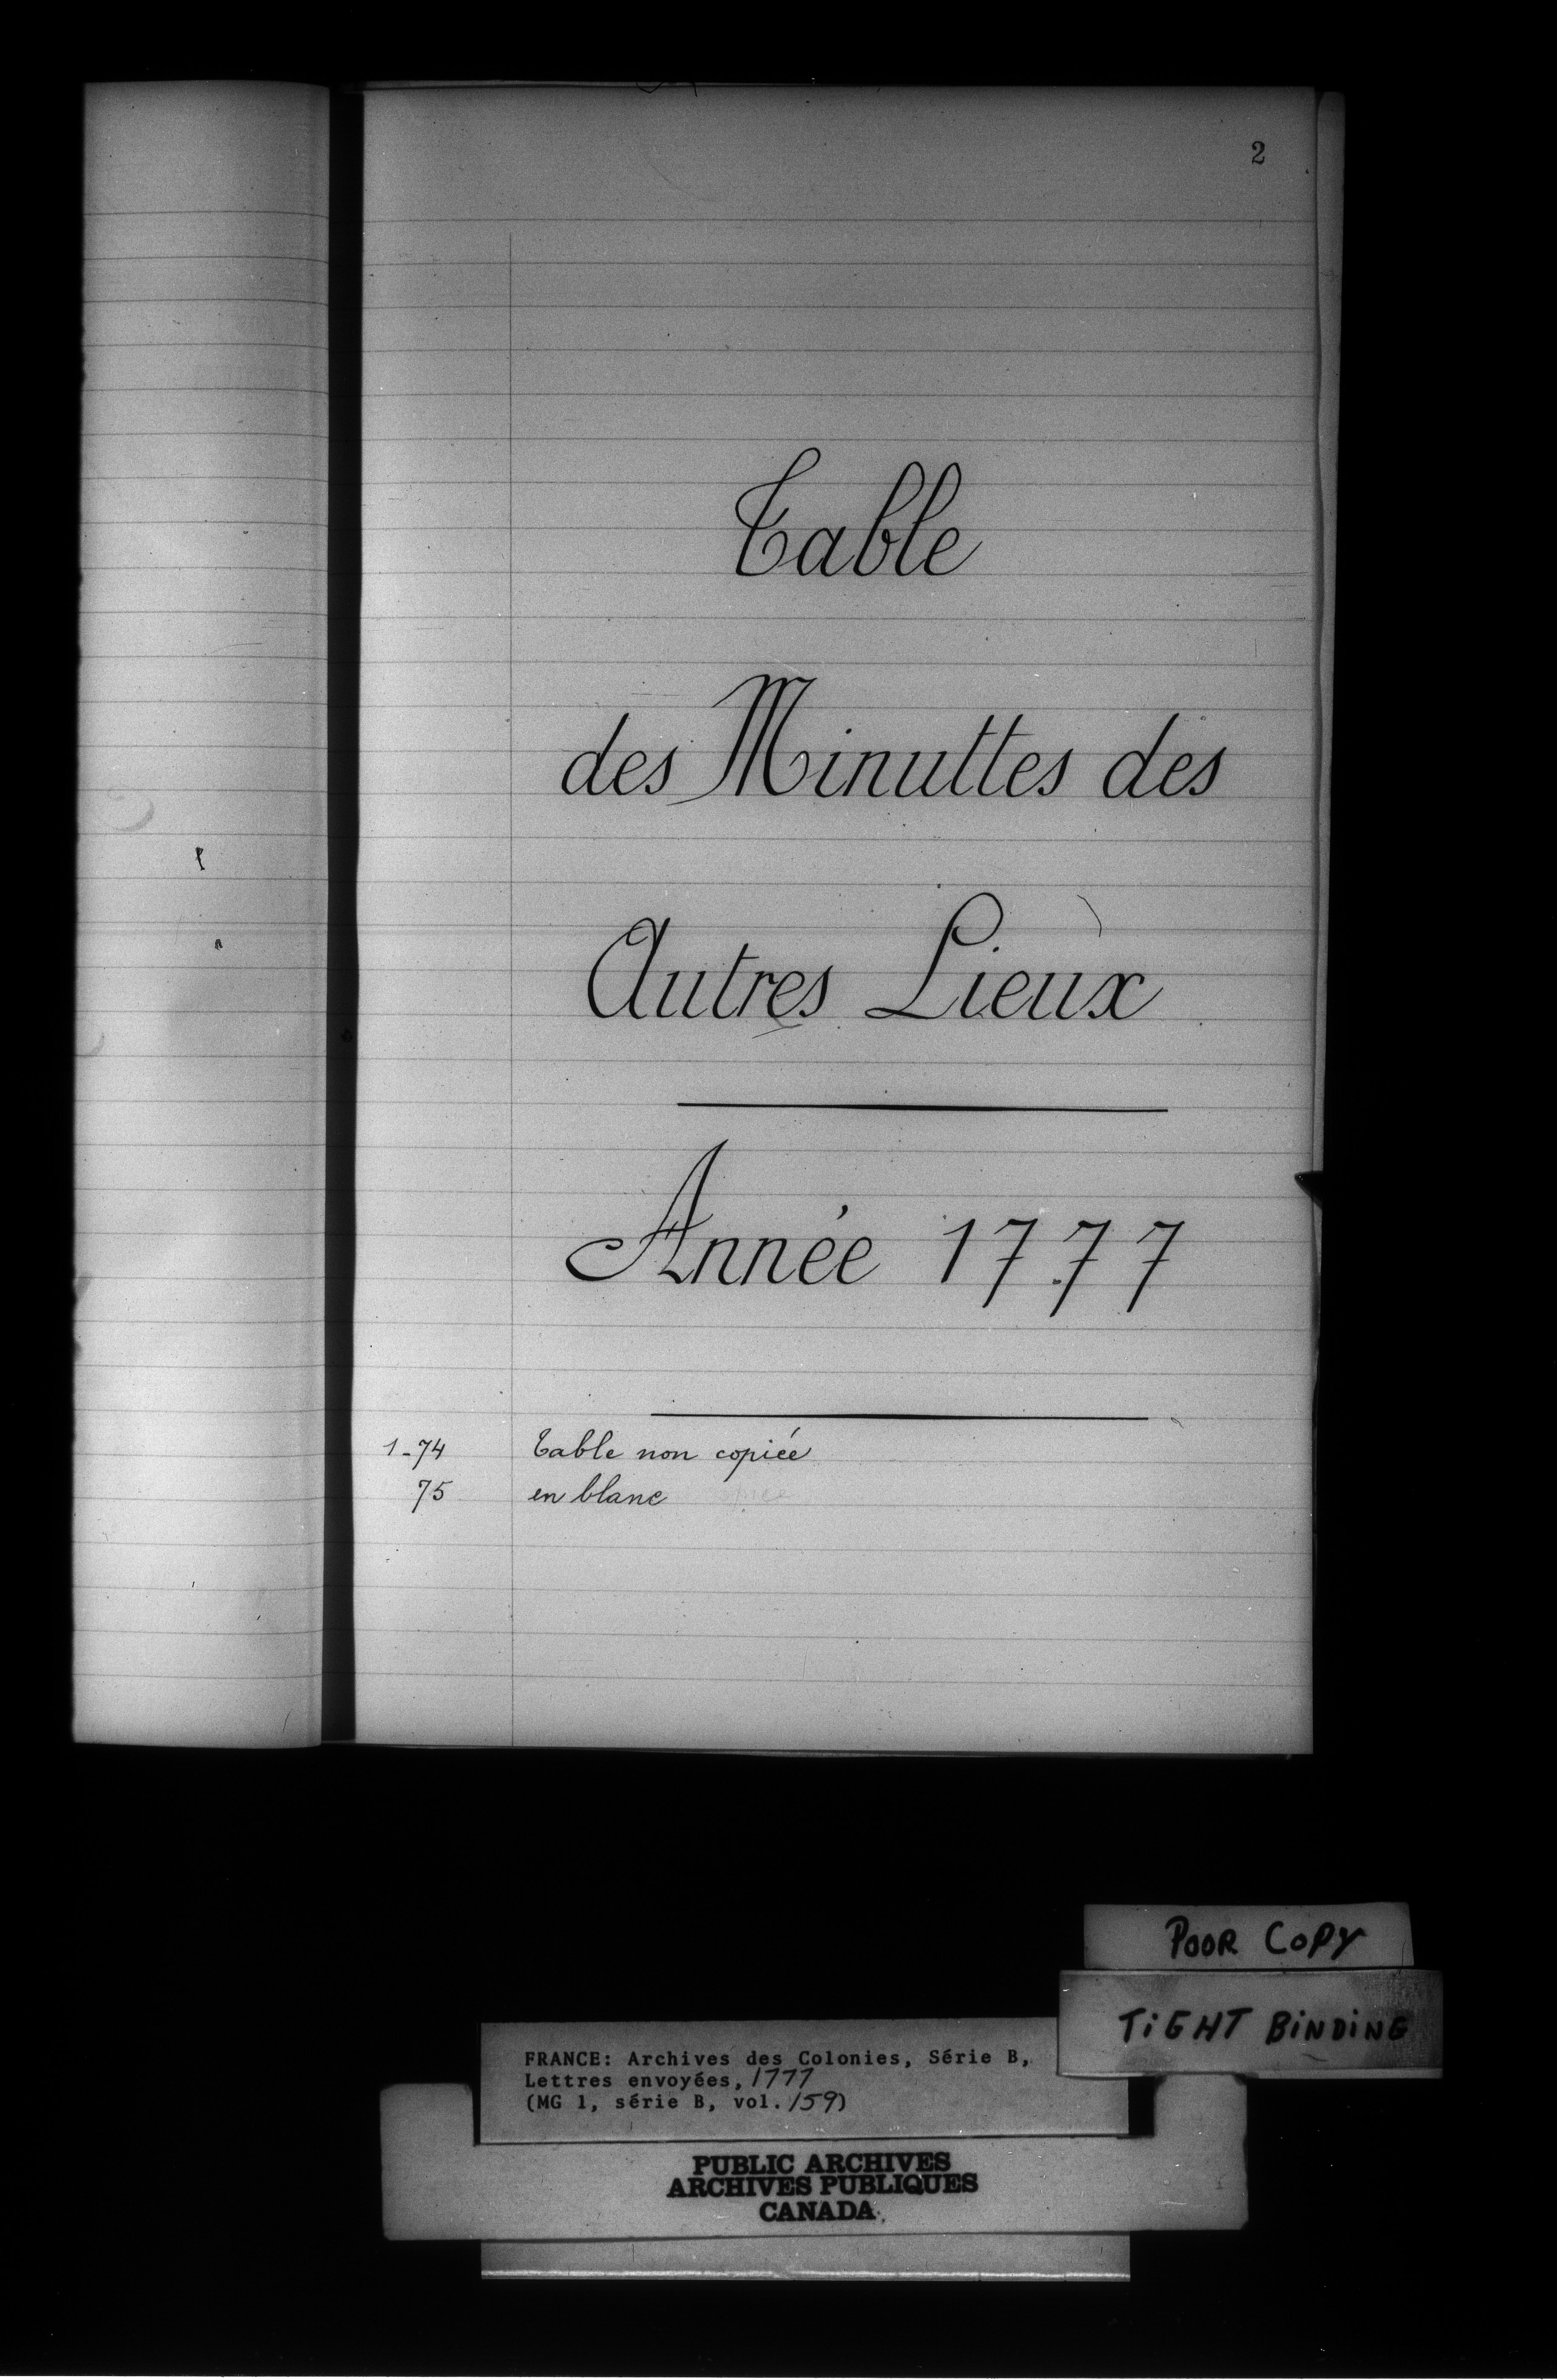 2
Table
des Minuttes des
Autres Lieux
Année 1777
1-74 Table non copiée
75 en blanc
POOR COPY
TIGHT BINDING
FRANCE: Archives des Colonies, Série B,
Lettres envoyées, 1777
(MG 1, série B, vol. 159)
PUBLIC ARCHIVES
ARCHIVES PUBLIQUES
CANADA